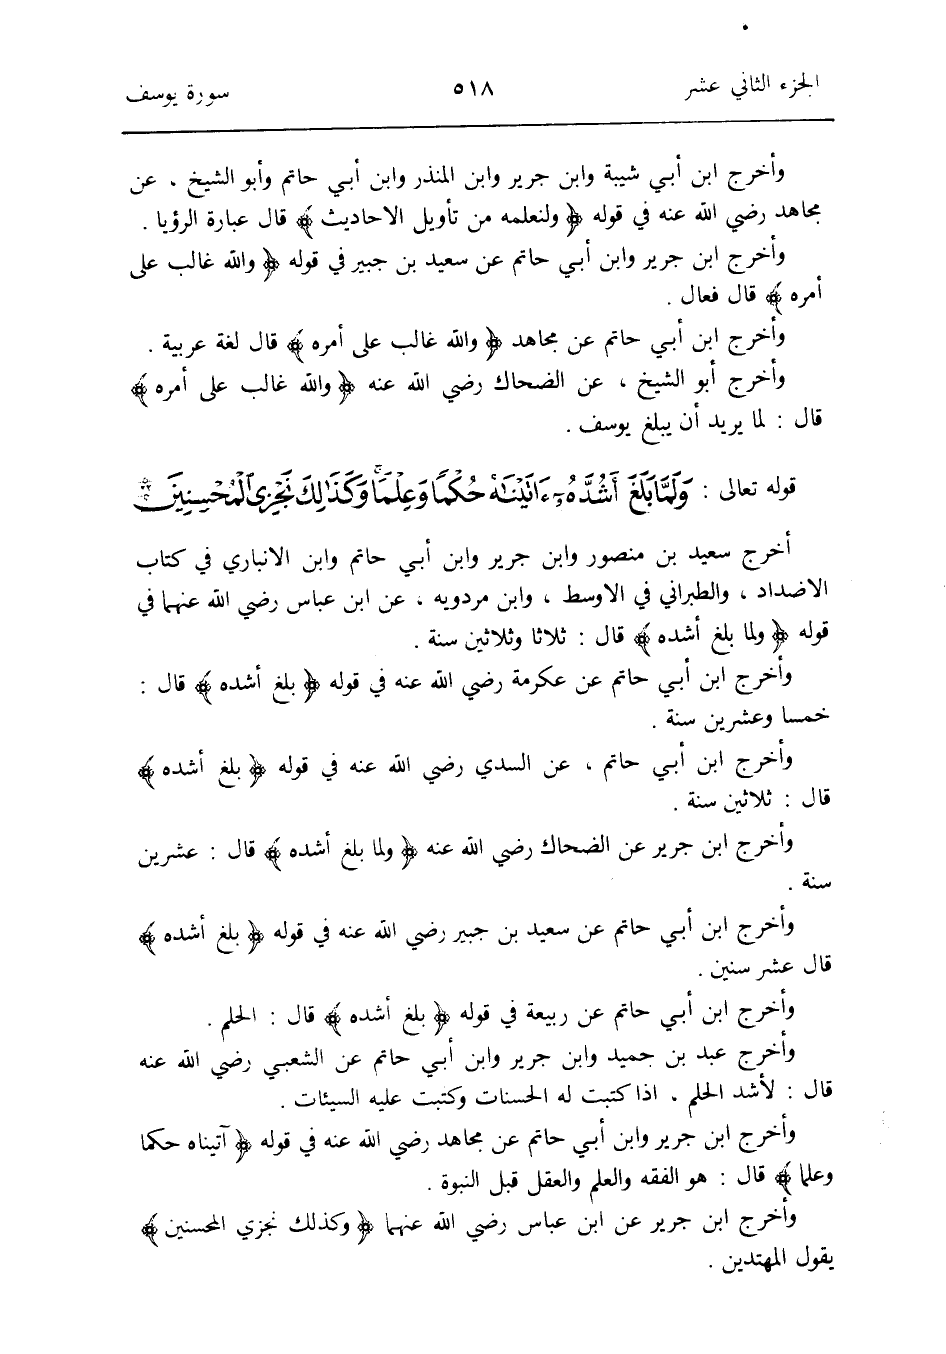 الجزء الثاني عشر ٥١٨ سورة يوسف
وأخرج ابن أبي شيبة وابن جرير وابن المنذر وابن أبي حاتم وأبو الشيخ ، عن
مجاهد رضي الله عنه في قوله ﴿ ولنعلمه من تأويل الاحاديث ﴾ قال عبارة الرؤيا .
وأخرج ابن جرير وابن أبي حاتم عن سعيد بن جبير في قوله ﴿ والله غالب على
أمره ﴾ قال فعال .
وأخرج ابن أبي حاتم عن مجاهد ﴿ والله غالب على أمره ﴾ قال لغة عربية .
وأخرج أبو الشيخ ، عن الضحاك رضي الله عنه ﴿ والله غالب على أمره ﴾
قال : لما يريد أن يبلغ يوسف .
قوله تعالى : وَلَمَّا بَلَغَ أَشُدَّهُۥٓ ءَاتَيْنَٰهُ حُكْمًا وَعِلْمًا ۚ وَكَذَٰلِكَ نَجْزِى ٱلْمُحْسِنِينَ ٢٢
أخرج سعيد بن منصور وابن جرير وابن أبي حاتم وابن الانباري في كتاب
الاضداد ، والطبراني في الاوسط ، وابن مردويه ، عن ابن عباس رضي الله عنهما في
قوله ﴿ ولما بلغ أشده ﴾ قال : ثلاثا وثلاثين سنة .
وأخرج ابن أبي حاتم عن عكرمة رضي الله عنه في قوله ﴿ بلغ أشده ﴾ قال :
خمسا وعشرين سنة .
وأخرج ابن أبي حاتم ، عن السدي رضي الله عنه في قوله ﴿ بلغ أشده ﴾
قال : ثلاثين سنة .
وأخرج ابن جرير عن الضحاك رضي الله عنه ﴿ ولما بلغ أشده ﴾ قال : عشرين
سنة .
وأخرج ابن أبي حاتم عن سعيد بن جبير رضي الله عنه في قوله ﴿ بلغ أشده ﴾
قال عشر سنين .
وأخرج ابن أبي حاتم عن ربيعة في قوله ﴿ بلغ أشده ﴾ قال : الحلم .
وأخرج عبد بن حميد وابن جرير وابن أبي حاتم عن الشعبي رضي الله عنه
قال : لأشد الحلم ، اذا كتبت له الحسنات وكتبت عليه السيئات .
وأخرج ابن جرير وابن أبي حاتم عن مجاهد رضي الله عنه في قوله ﴿ آتيناه حكما
وعلما ﴾ قال : هو الفقه والعلم والعقل قبل النبوة .
وأخرج ابن جرير عن ابن عباس رضي الله عنهما ﴿ وكذلك نجزي المحسنين ﴾
يقول المهتدين .